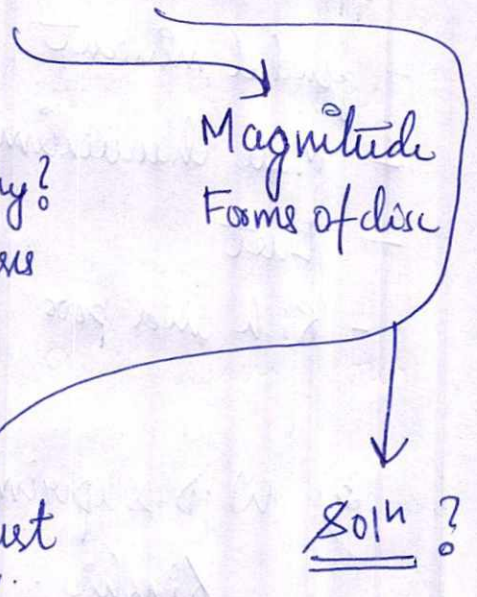 Magnitude
Forms of disc
?
Soln ?